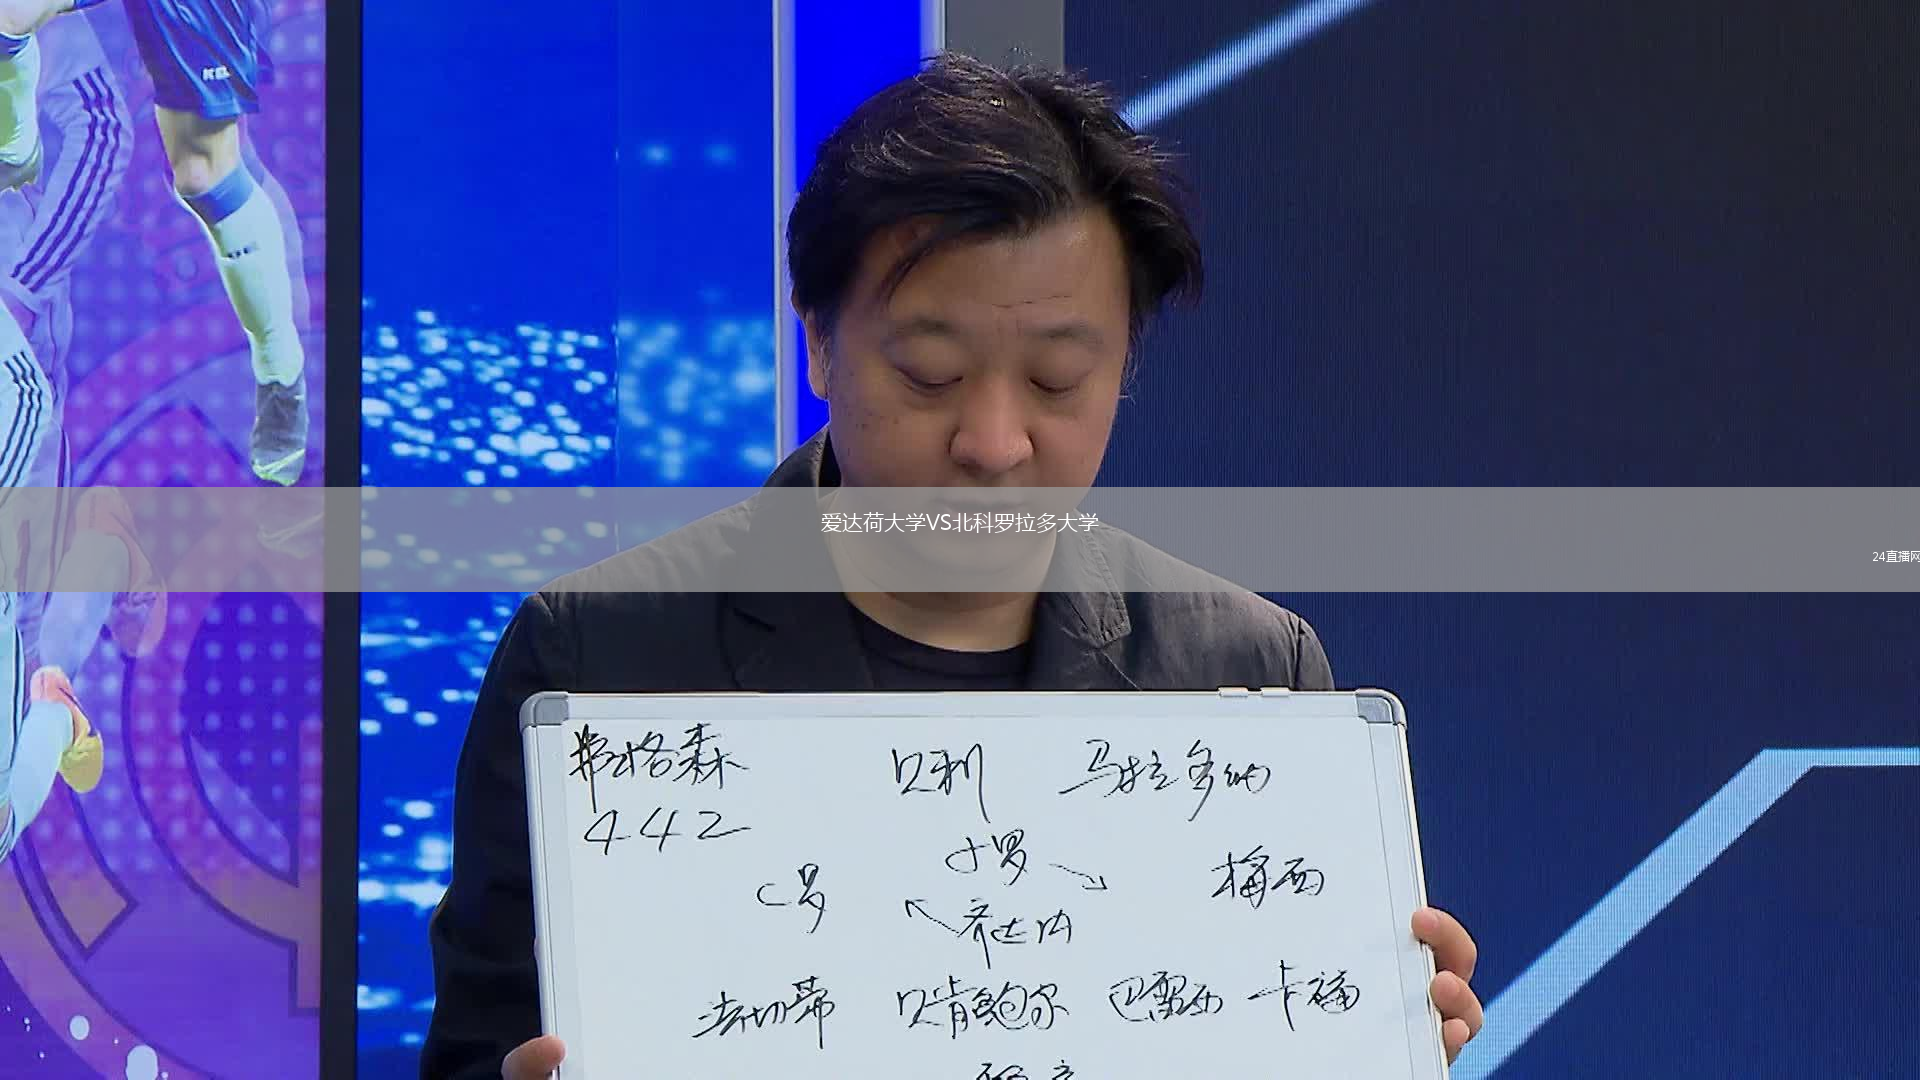 KEL
爱达荷大学VS北科罗拉多大学
24直播网
弗格森 贝利 马拉多纳
442
小罗
C罗 梅西
齐达内
法切蒂 贝肯鲍尔 巴雷西 卡福